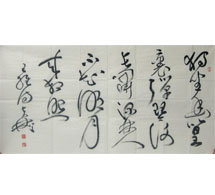 独坐幽篁
裏弹琴復
長嘯深林人
不知明月
来相照